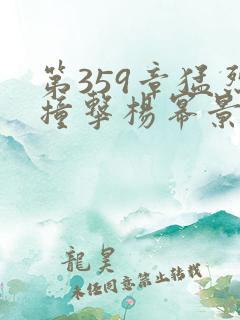 第359章猛烈
撞擊楊冪景
龍昊
未任同意禁止转载